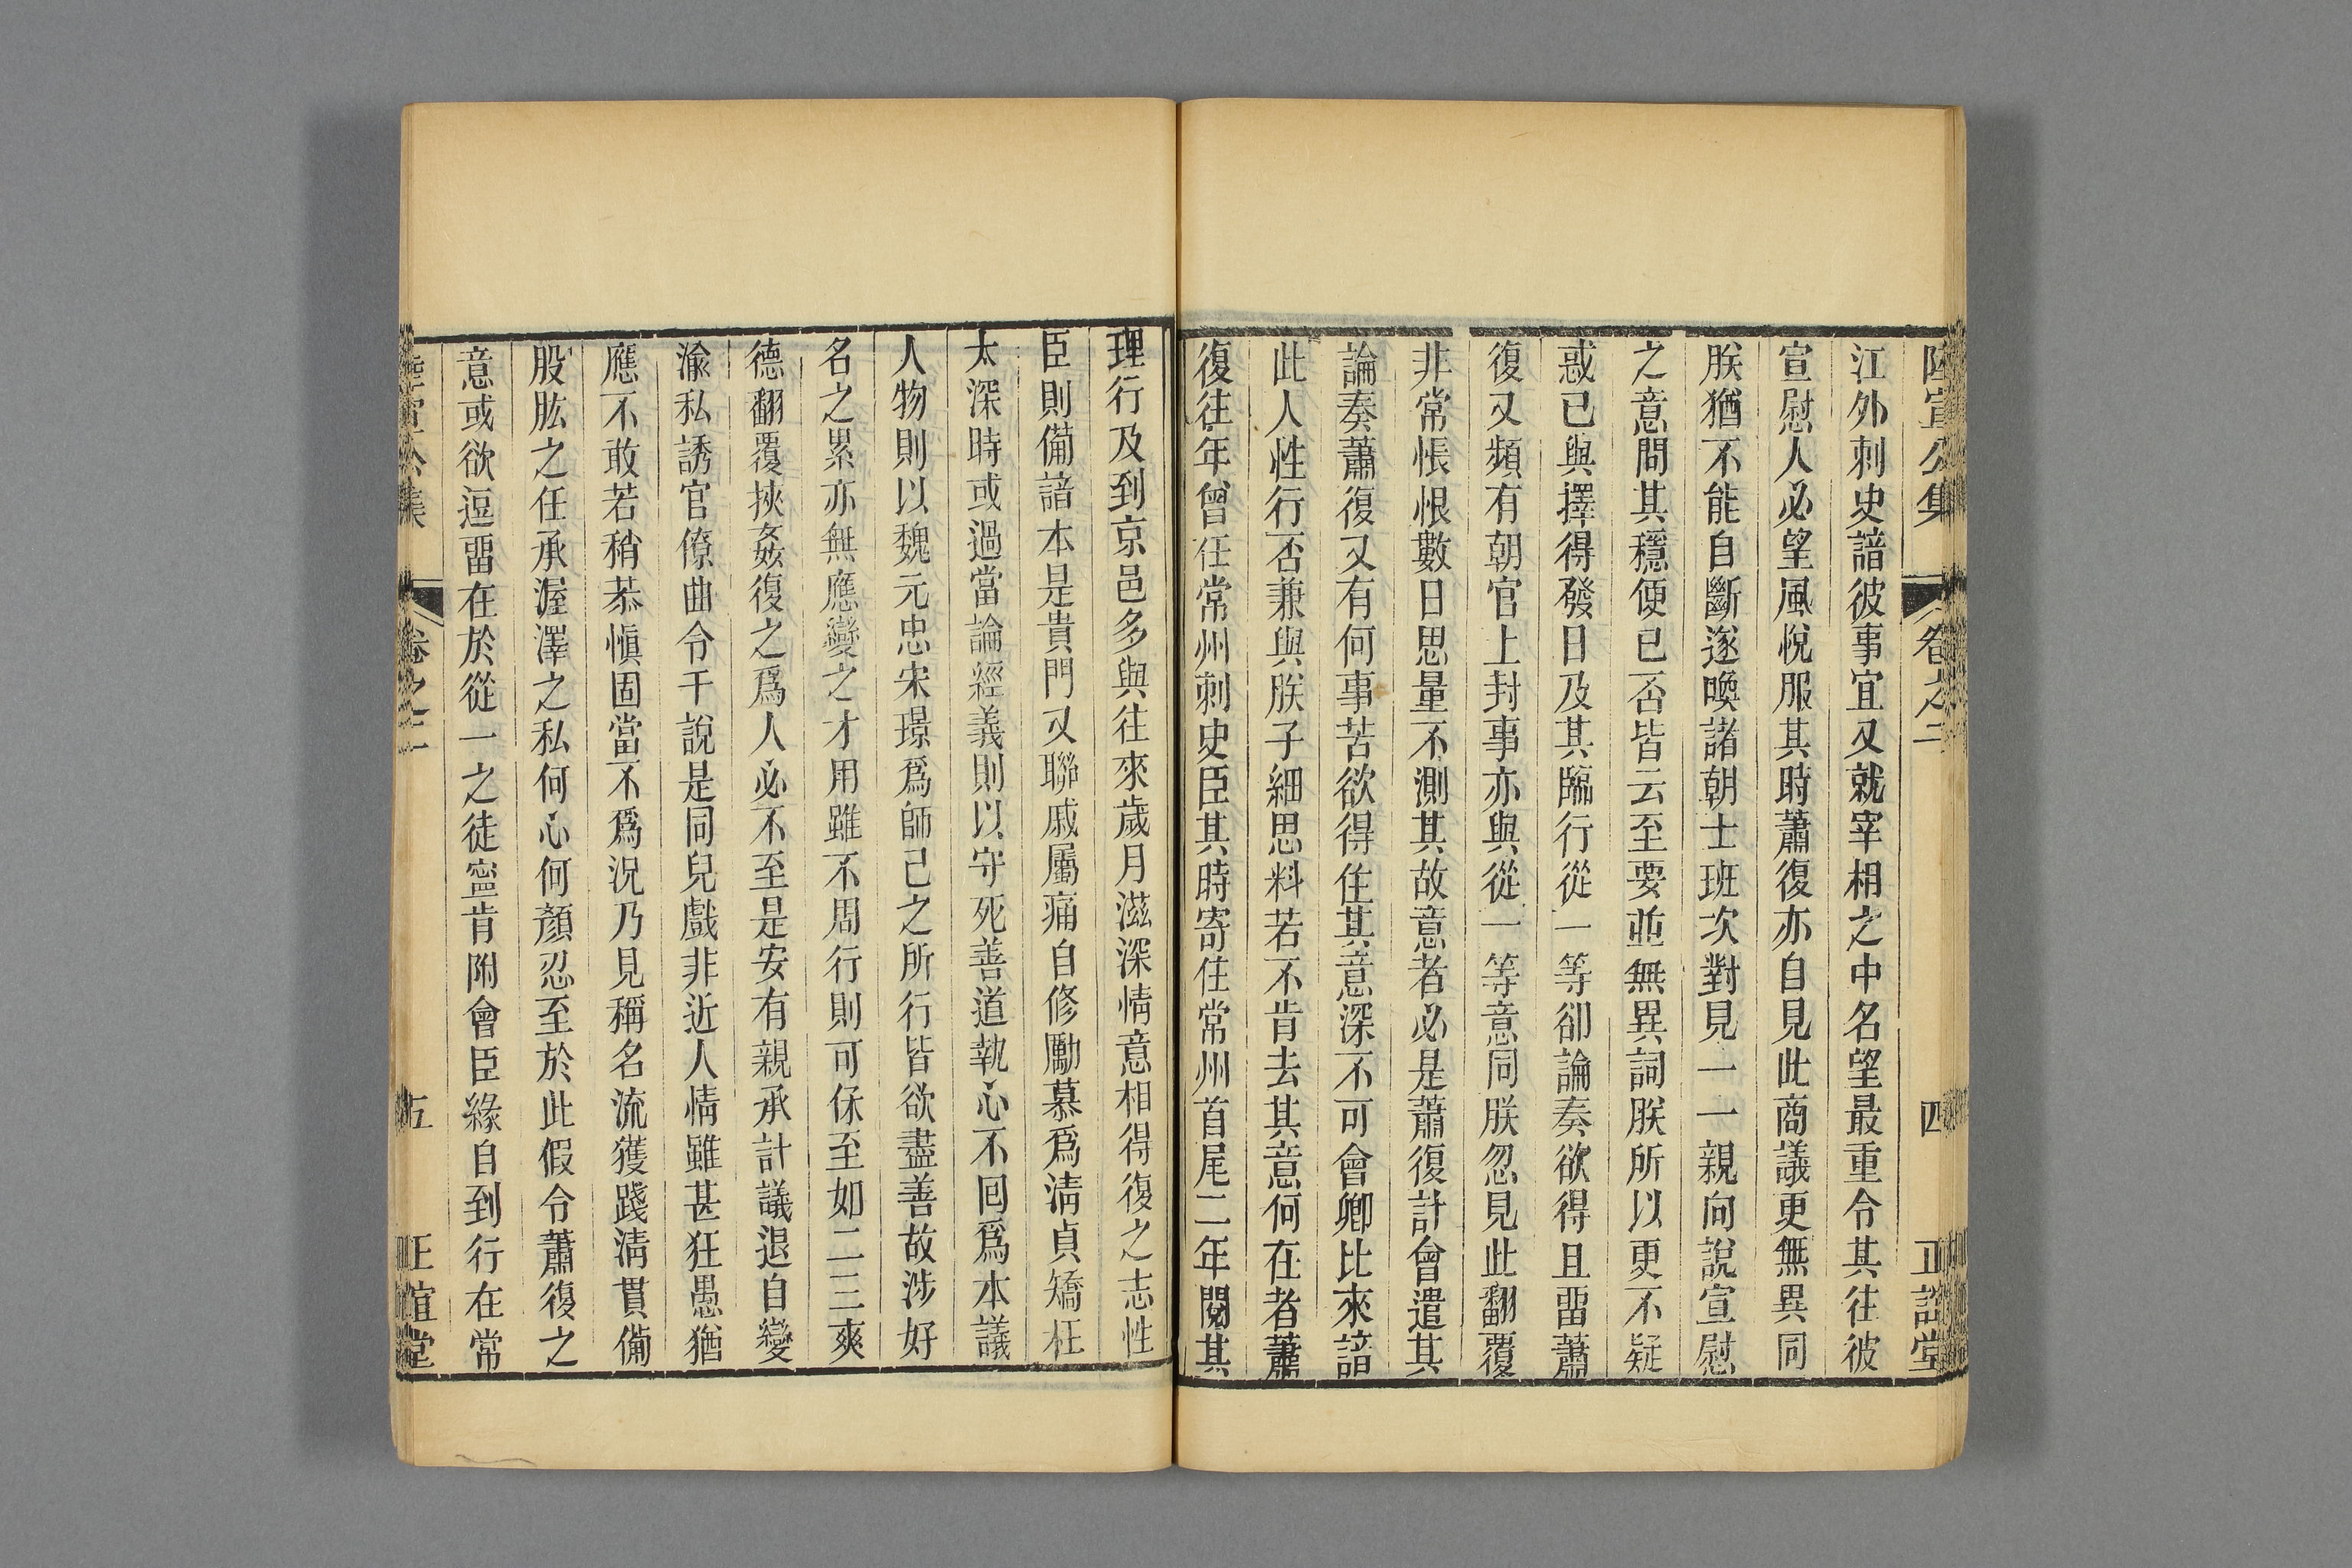 陸宣公集 卷之二 四 正誼堂
江外刺史諳彼事宜又就宰相之中名望最重令其往彼
宣慰人必望風悅服其時蕭復亦自見此商議更無異同
朕猶不能自斷遂喚諸朝士班次對見一一親向說宣慰
之意問其穩便已否皆云至要並無異詞朕所以更不疑
惑已與擇得發日及其臨行從一等卻論奏欲得且畱蕭
復又頻有朝官上封事亦與從一等意同朕忽見此翻覆
非常悵恨數日思量不測其故意者必是蕭復計會遣其
論奏蕭復又有何事苦欲得住其意深不可會卿比來諳
此人性行否兼與朕子細思料若不肯去其意何在者蕭
復往年曾任常州刺史臣其時寄住常州首尾二年閱其
理行及到京邑多與往來歲月滋深情意相得復之志性
臣則備諳本是貴門又聯戚屬痛自修勵慕爲淸貞矯枉
太深時或過當論經義則以守死善道執心不回爲本議
人物則以魏元忠宋璟爲師己之所行皆欲盡善故涉好
名之累亦無應變之才用雖不周行則可保至如二三爽
德翻覆挾姦復之爲人必不至是安有親承計議退自變
渝私誘官僚曲令干說是同兒戲非近人情雖甚狂愚猶
應不敢若稍恭愼固當不爲況乃見稱名流獲踐淸貫備
股肱之任承渥澤之私何心何顏忍至於此假令蕭復之
意或欲逗畱在於從一之徒寍肯附會臣緣自到行在常
陸宣公集 卷之二 五 正誼堂